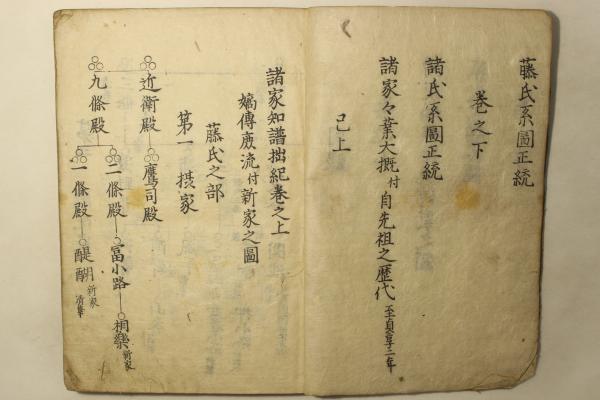 藤氏系圖正統
巻之下
諸氏系圖正統
諸家々業大概付自先祖之歴代至貞享二年
已上
諸家知譜拙紀巻之上
嫡傳庶流付新家之圖
藤氏之部
第一 摂家
近衛殿 鷹司殿
九條殿
二條殿 冨小路 桐樂新家
一條殿 醍醐新家清華